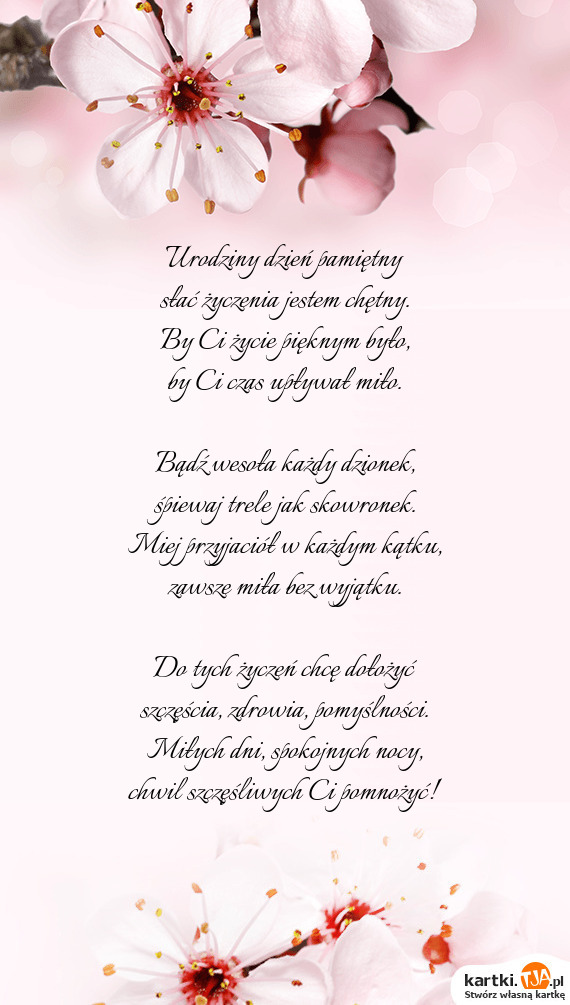 Urodziny dzień pamiętny
słać życzenia jestem chętny.
By Ci życie pięknym było,
by Ci czas upływał miło.

Bądź wesoła każdy dzionek,
śpiewaj trele jak skowronek.
Miej przyjaciół w każdym kątku,
zawsze miła bez wyjątku.

Do tych życzeń chcę dołożyć
szczęścia, zdrowia, pomyślności.
Miłych dni, spokojnych nocy,
chwil szczęśliwych Ci pomnożyć!

kartki.TJA.pl
Stwórz własną kartkę